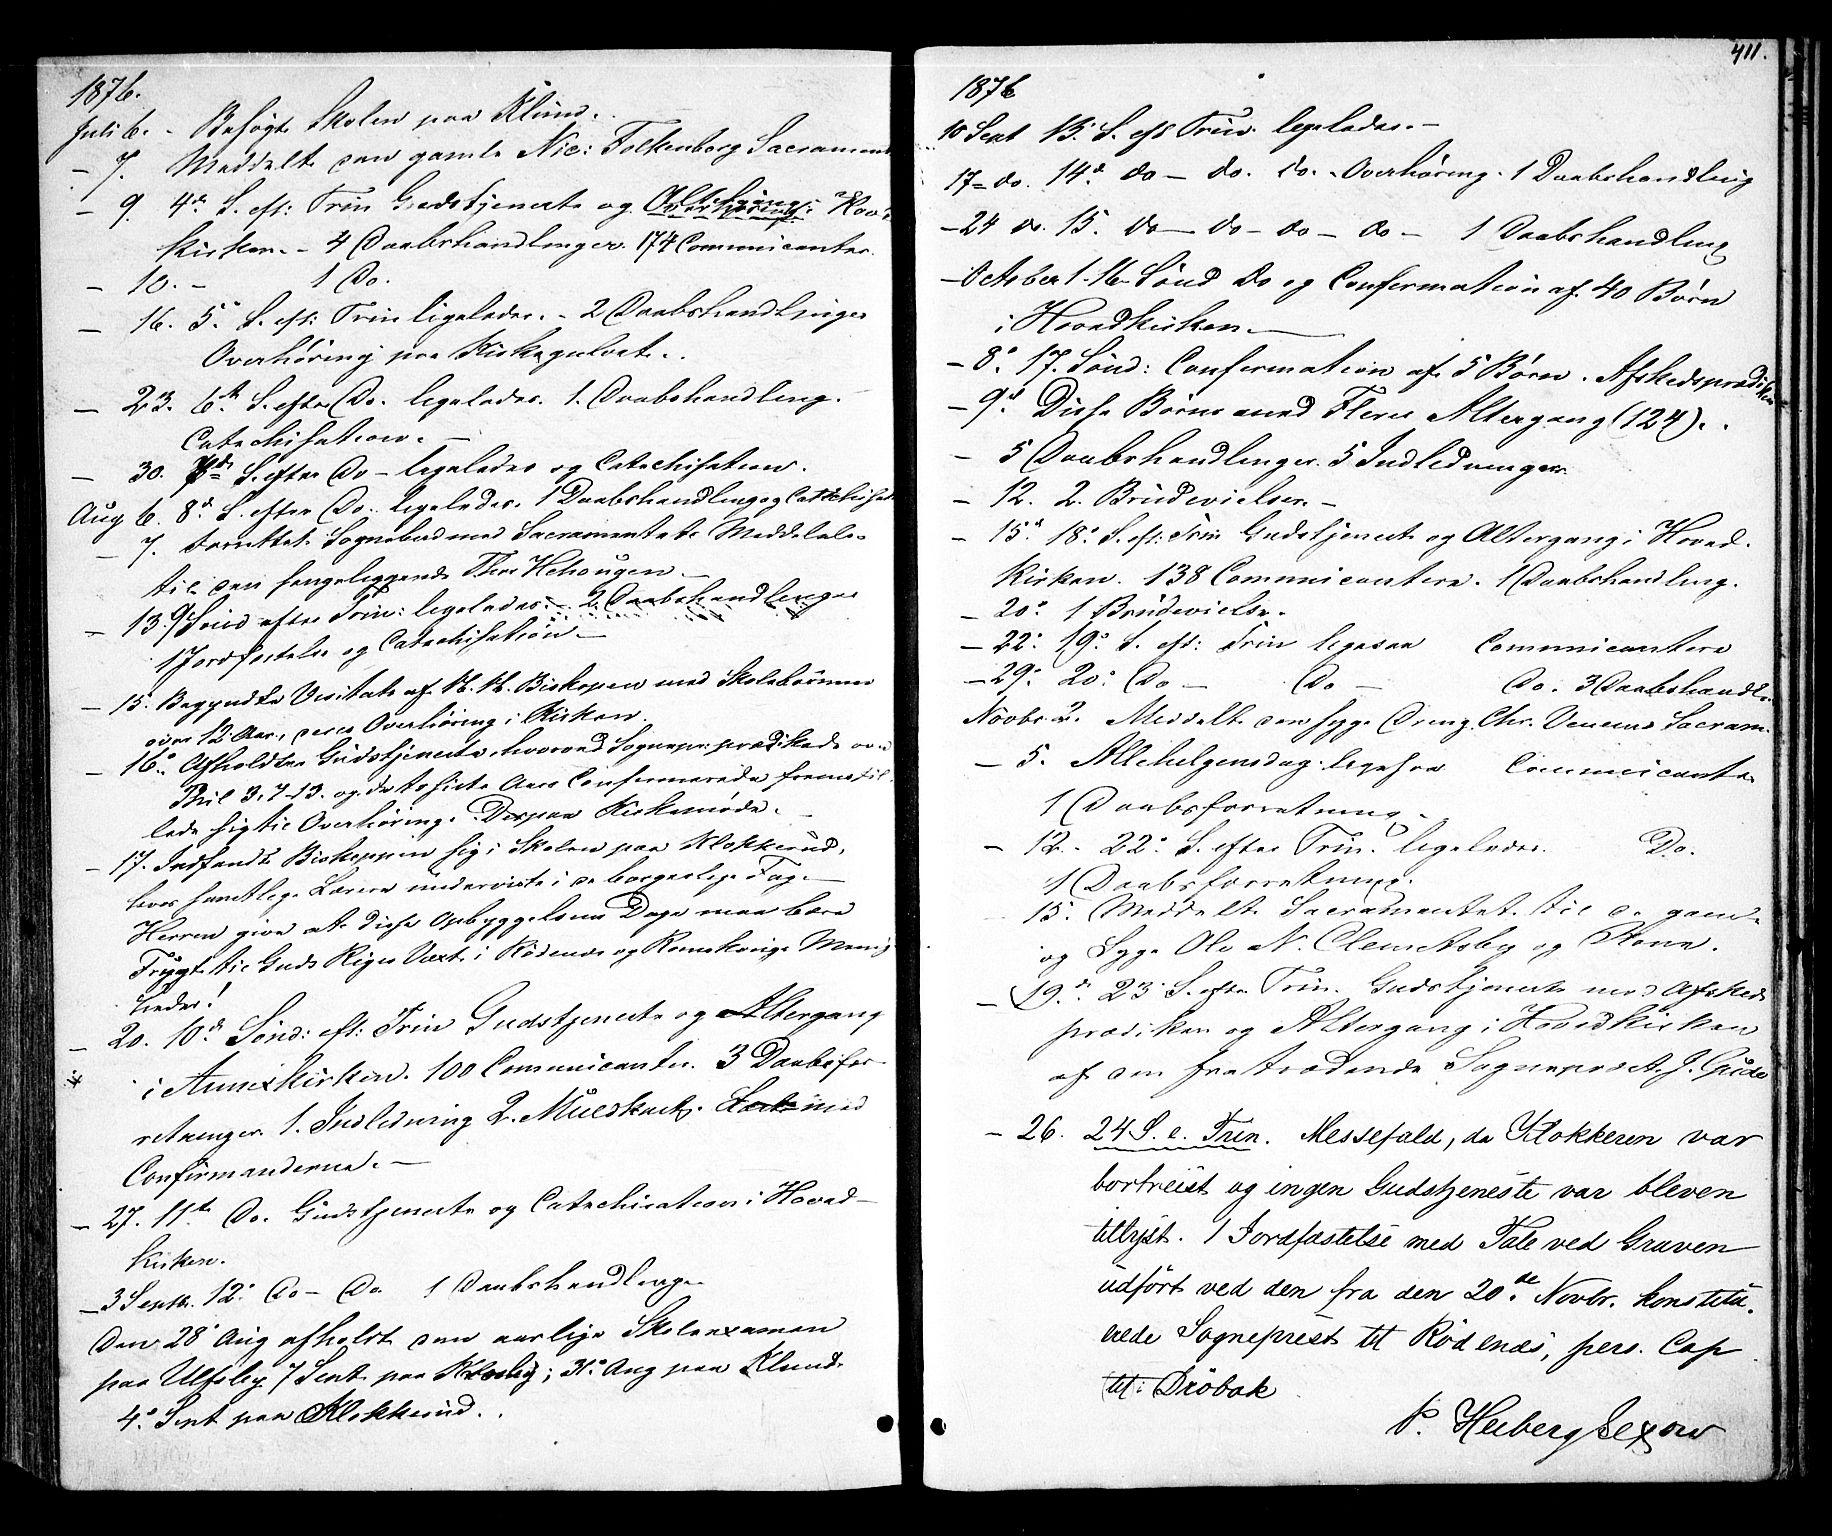 1876.
Juli 6. - Besøgt Skolen paa Klund.
- 7. Meddelt den gamle Nic: Folkenborg Sacrament
- 9. 4de S. eft: Trin Gudstjeneste og Altergang i Hov:
Kirken. - 4 Daabshandlinger. 174 Communicanter.
- 10. - 1 Do.
- 16. 5. S. eft: Trin ligeledes. - 2 Daabshandlinger
Overhøring paa Kirkegulvet.
- 23. 6te S. efter Do. ligeledes. 1. Daabshandling.
Catechisation. -
- 30. 7de S. efter Do - ligeledes og Catechisation.
Aug 6. 8de S. efter Do. ligeledes. 1 Daabshandling og Catechisat
- 7. Forrettet Sognebud med Sacramentets Meddelelse
til den sengeliggende Thor Hehougen -
- 13. 9 Sønd efter Trin: ligeledes. - 2. Daabshandlinger
1 Jordfæstelse og Catechisation. -
- 15. Begyndte Visitats af H. H. Biskopen med Skolebørnene
over 12 Aar, deres Overhøring i Kirken.
- 16. Afholdtes Gudstjeneste hvorved Sognepr: prædikede over
Phil 3, 7-13. og de to sidste Aars Confirmerede fremstil
lede sig til Overhøring. Derpaa Kirkemøde. -
- 17. Indfandt Biskoppen sig i Skolen paa Klokkerud,
hvor samtlige Lærere underviste i de borgerlige Fag. -
Herren give at disse Opbyggelsens Dage maa bære
Frugt til Guds Riges Vext i Rödenes og Romskougs Menig
heder!
- 20. 10de Sönd: eft: Trin Gudstjeneste og Altergang
i Annexkirken. 100 Communicanter. 3 Daabsfor
retninger. 1. Indledning 2. Muldkast. Læst med
Confirmanderne. -
- 27. 11te Do. Gudstjeneste og Catechisation i Hoved-
kirken.
- 3 Septbr. 12. Do - Do 1 Daabshandling
Den 28 Aug afholdt den aarlige Skoleexamen
paa Ulfsby 7 Sept. paa Krosby; 31. Aug paa Klund.
4. Sept paa Klokkerud.
411.
1876
10 Sept 13. S. eft Trin. ligeledes. -
17 - do. 14de do - do. do. - Overhøring. 1 Daabshandling
- 24 do. 15. do - do - do - do - 1 Daabshandling
- October 1. 16 Sönd do og Confirmation af 40 Børn
i Hovedkirken. -
- 8. 17. Sönd: Confirmation af 5 Børn. Afskedsprædiken
- 9de. Disse Børn med Flere Altergang (124).
- 5 Daabshandlinger. 5 Indledninger.
- 12. 2. Brudevielser. -
- 15de 18. S. eft: Trin Gudstjeneste og Altergang i Hoved.
Kirken. 138 Communicantere. 1 Daabshandling.
- 20. 1 Brudevielse.
- 22. 19. S. eft: Trin ligesaa Communicantere
- 29. 20. Do - Do - Do. 3 Daabshandl.
Novbr. 2. Meddelt den syge Dreng Chr. Venenes Sacram.
- 5. Allehelgensdag. ligesaa Communicanter
1 Daabsforretning.
- 12. - 22. S. efter Trin. ligeledes. Do.
1 Daabsforretning.
15. Meddelt Sacramentet til de gamle
og Syge Ole N. Clemetsby og Kone.
- 19de. 23. S. efter Trin. Gudstjeneste med Afskeds
prædiken og Altergang i Hovedkirken
af den fratrædende Sogneprest J. Gude
- 26. 24 S. e. Trin. Messefald, da Klokkeren var
bortreist og ingen Gudstjeneste var bleven
tillyst. 1 Jordfæstelse med Tale ved Graven
udført ved den fra den 20de Novbr. konstitu-
erede Sogneprest til Rödenæs, pers. Cap
til Dröbak
P. Heiberg Sexow